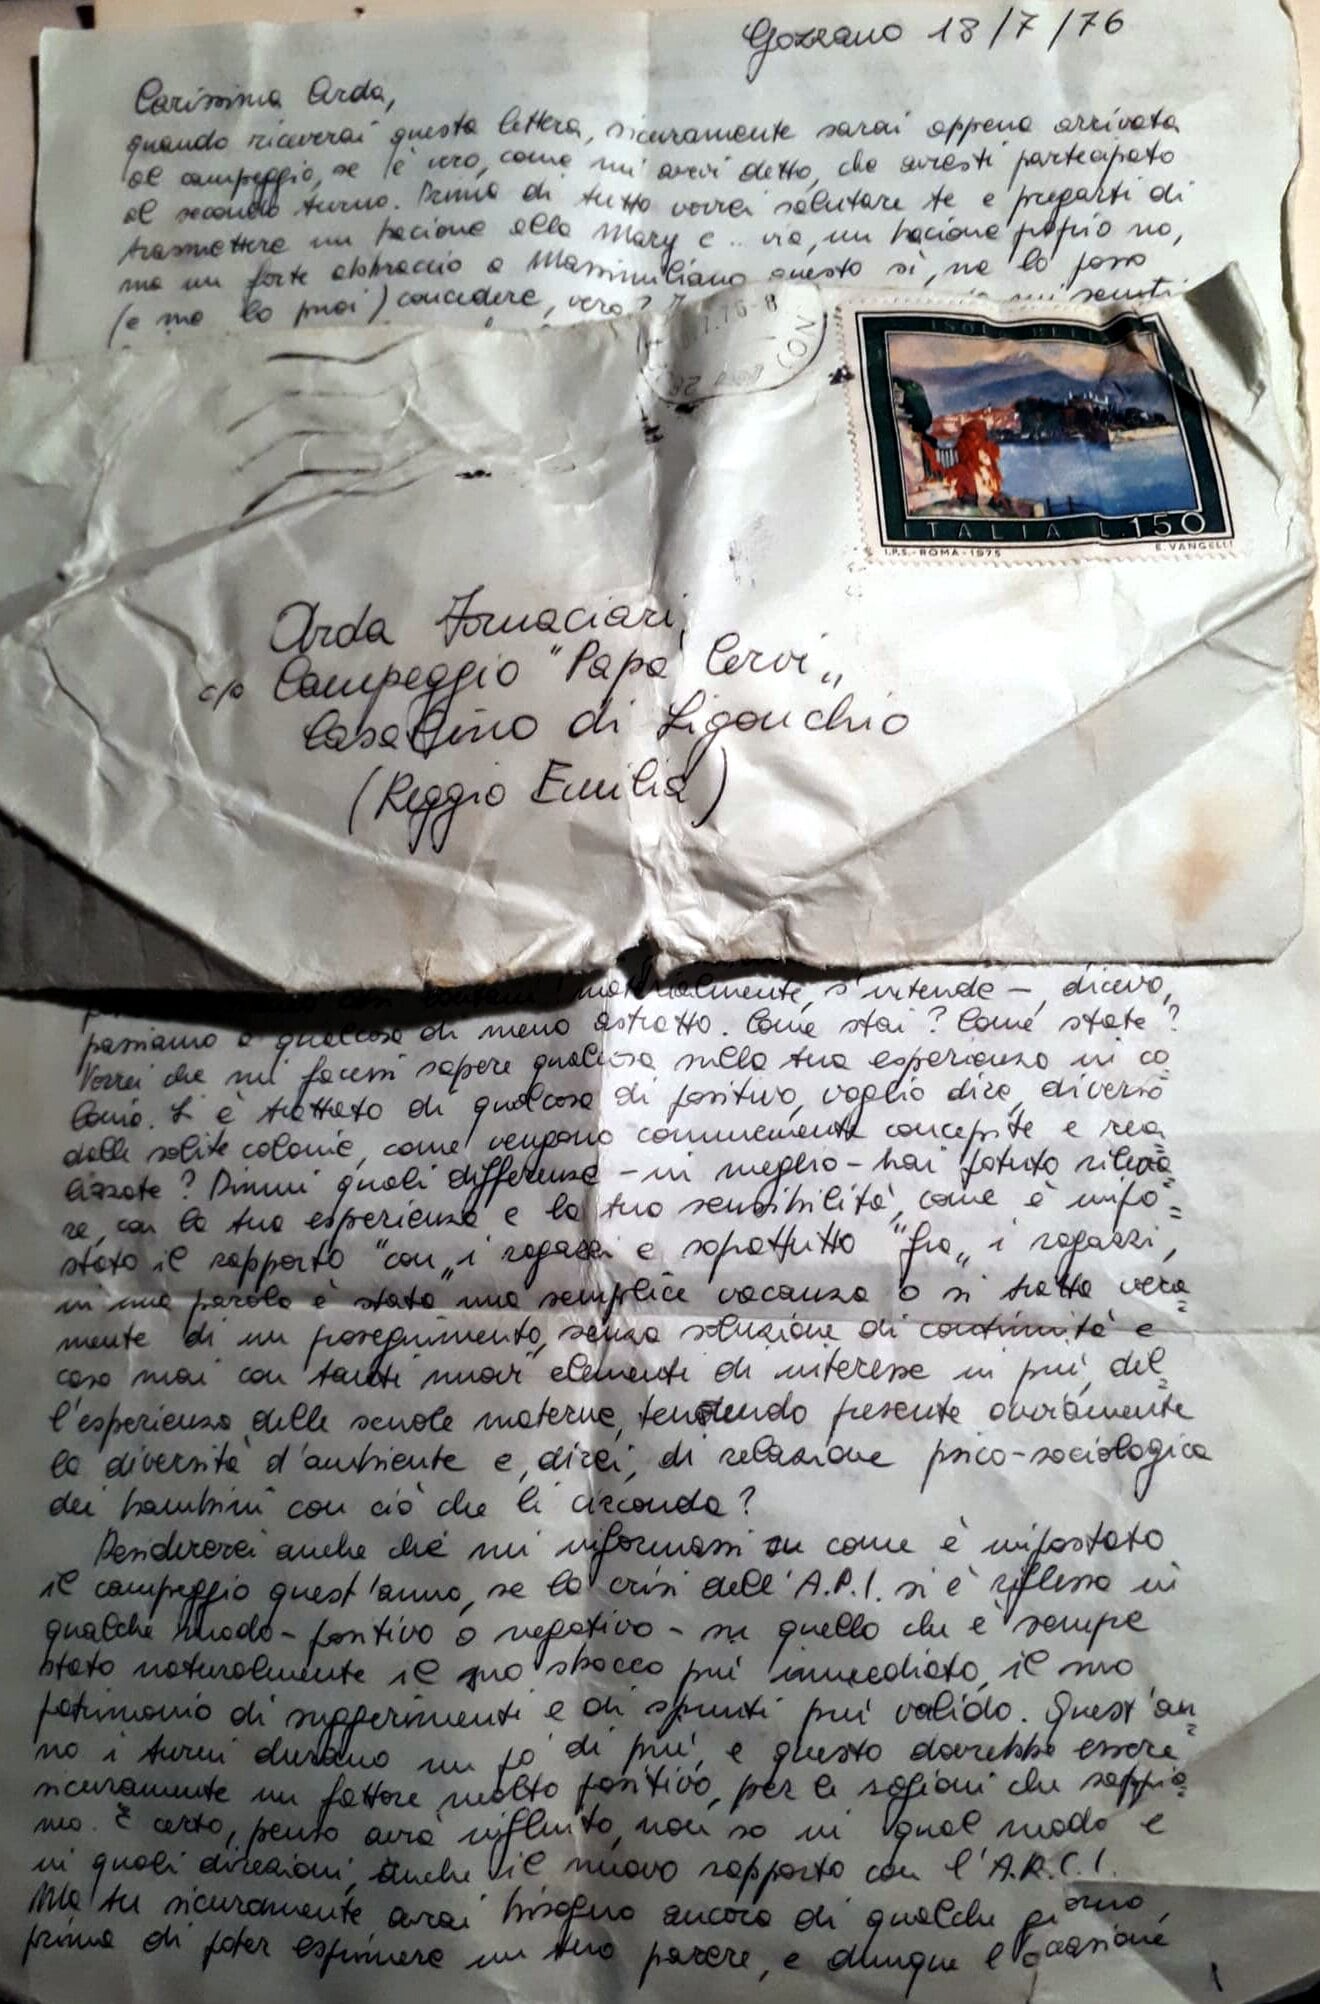 Gozzano 18/7/76
Carissima Arda,
quando riceverai questa lettera, sicuramente sarai appena arrivata
al campeggio, se è vero, come mi avevi detto, che avresti partecipato
al secondo turno. Prima di tutto vorrei salutare te e pregarti di
trasmettere un bacione alla Mary e .. via, un bacione proprio no,
ma un forte abbraccio a Massimiliano questo sì, me lo posso
(e me lo puoi) concedere, vero?
mi senti
.7.76-8
CON
ISOLA BELLA
ITALIA L.150
I.P.S.-ROMA-1975 E. VANGELLI
Arda Fornaciari,
c/o Campeggio "Papà Cervi„
Casalino di Ligonchio
(Reggio Emilia)
materialmente, s'intende —, dicevo,
passiamo a qualcosa di meno astratto. Come stai? Come state?
Vorrei che mi facessi sapere qualcosa sulla tua esperienza in co
lonia. Si è trattato di qualcosa di positivo, voglio dire, diverso
dalle solite colonie, come vengono comunemente concepite e rea=
lizzate? Dimmi quali differenze - in meglio - hai potuto rileva=
re, con la tua esperienza e la tua sensibilità, come è impo=
stato il rapporto "con„ i ragazzi e soprattutto "fra„ i ragazzi,
in una parola è stata una semplice vacanza o si tratta vera=
mente di un proseguimento, senza soluzione di continuità e
caso mai con tanti nuovi elementi di interesse in più, del=
l'esperienza delle scuole materne, tenendo presente ovviamente
la diversità d'ambiente e, direi, di relazione psico-sociologica
dei bambini con ciò che li circonda?
Desidererei anche che mi informassi su come è impostato
il campeggio quest'anno, se la crisi dell'A.P.I. si è riflessa in
qualche modo - positivo o negativo - su quello che è sempre
stato naturalmente il suo sbocco più immediato, il suo
patrimonio di suggerimenti e di spunti più valido. Quest'an=
no i turni durano un po' di più, e questo dovrebbe essere
sicuramente un fattore molto positivo, per le ragioni che sappia=
mo. E certo, penso avrà influito, non so in qual modo e
in quali direzioni, anche il nuovo rapporto con l'A.R.C.I.
Ma tu sicuramente avrai bisogno ancora di qualche giorno,
prima di poter esprimere un tuo parere, e dunque l'occasione